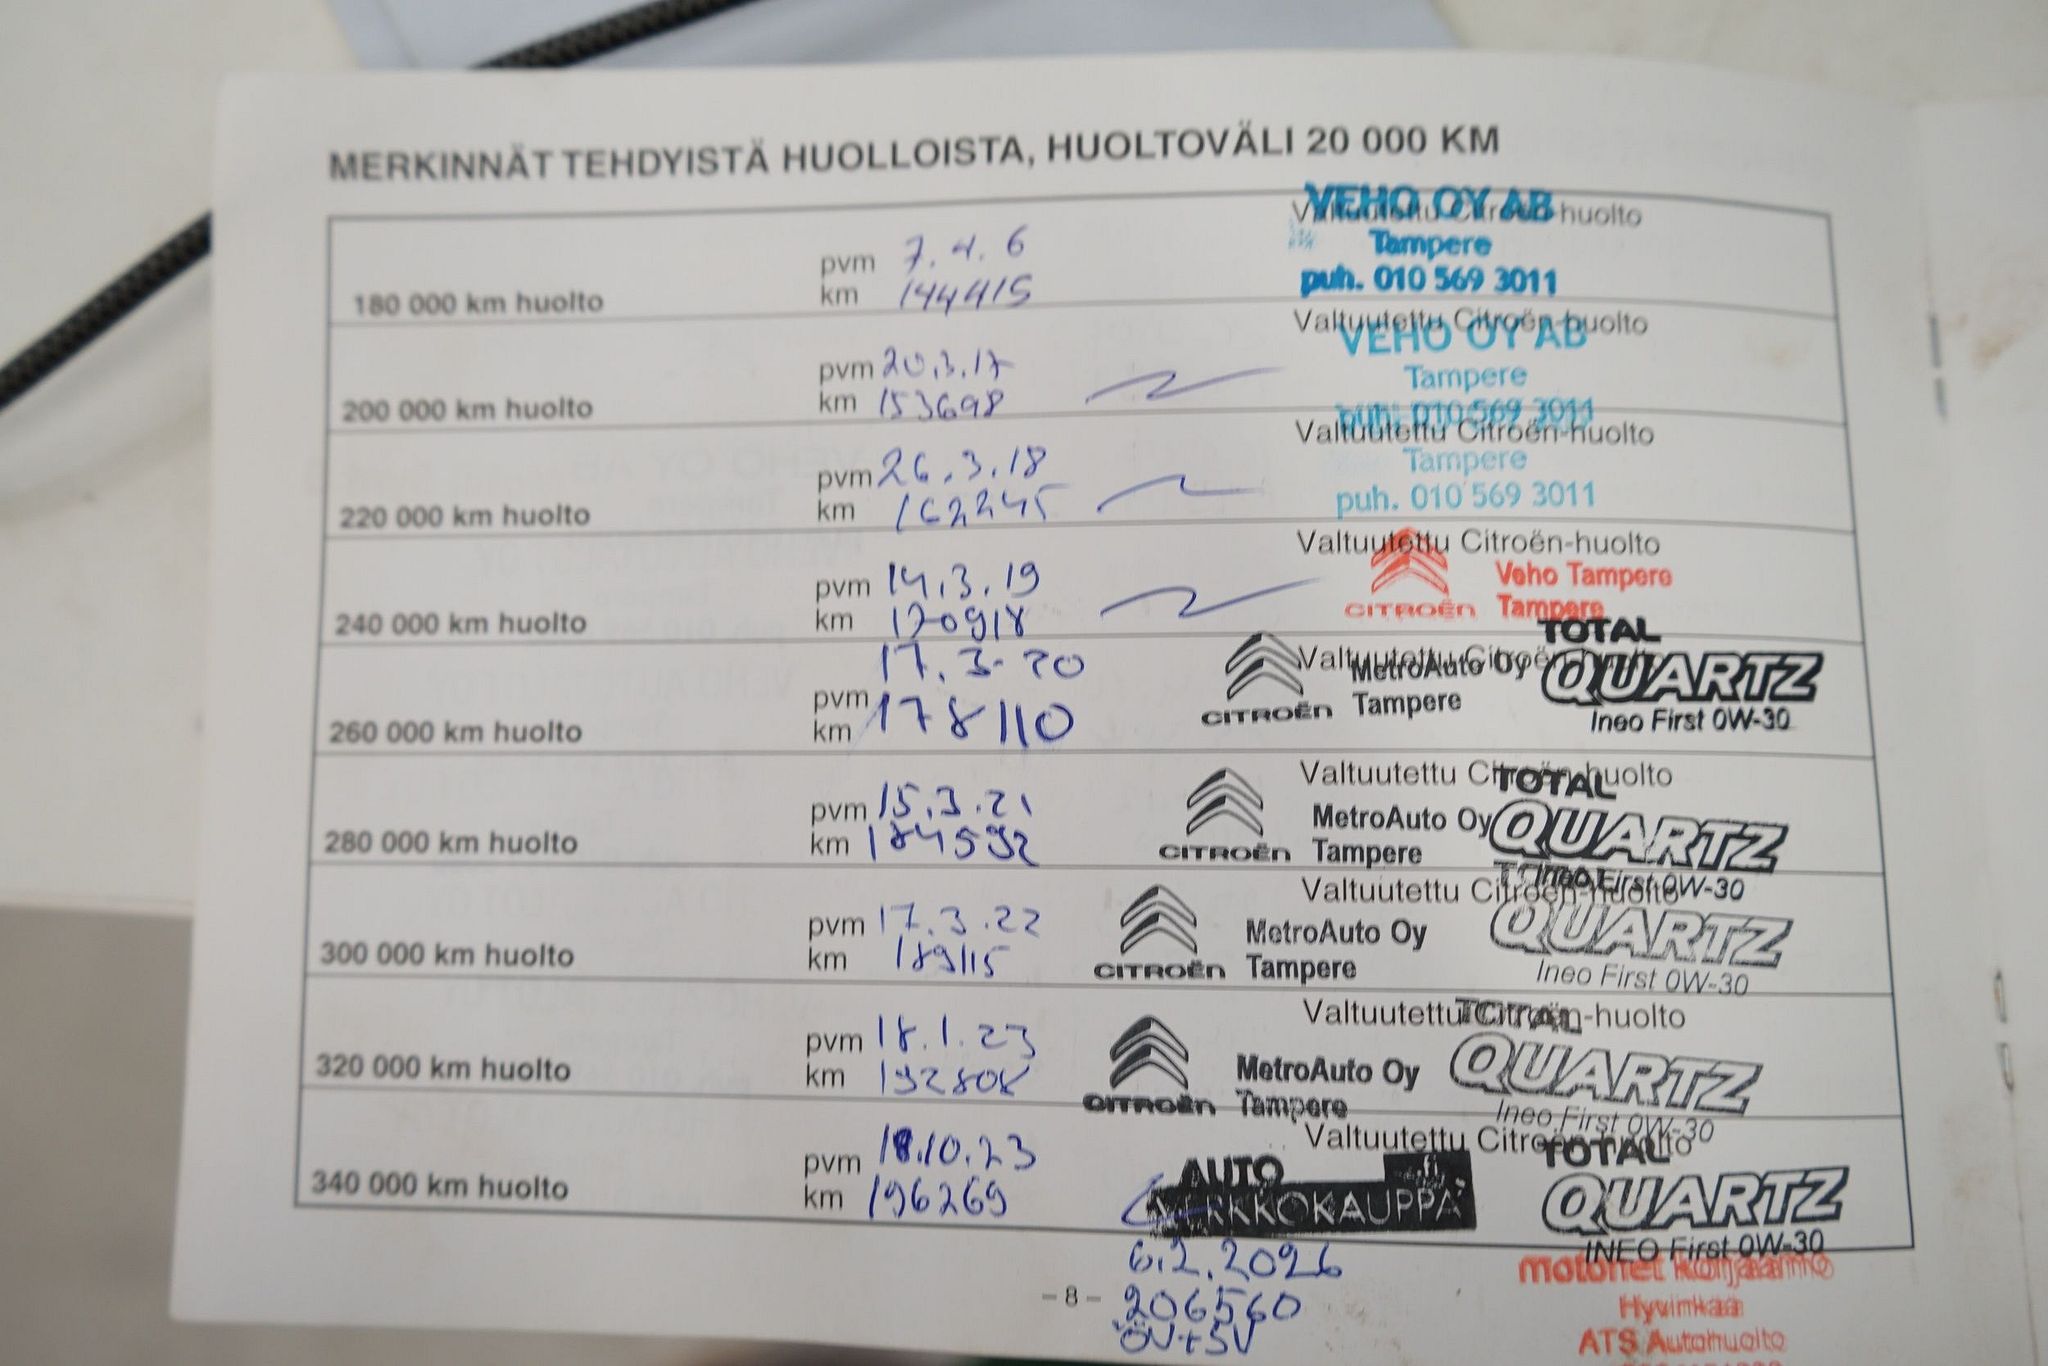 MERKINNÄT TEHDYISTÄ HUOLLOISTA, HUOLTOVÄLI 20 000 KM
180 000 km huolto
pvm 7.4.6
km 144415
Valtuutettu Citroën-huolto
VEHO OY AB
Tampere
puh. 010 569 3011
200 000 km huolto
pvm 20.3.17
km 153698
Valtuutettu Citroën-huolto
VEHO OY AB
Tampere
puh. 010 569 3011
220 000 km huolto
pvm 26.3.18
km 162245
Valtuutettu Citroën-huolto
Tampere
puh. 010 569 3011
240 000 km huolto
pvm 14.3.19
km 170918
Valtuutettu Citroën-huolto
CITROËN
Veho Tampere
Tampere
260 000 km huolto
pvm 17.3.20
km 178110
Valtuutettu Citroën-huolto
CITROËN
MetroAuto Oy
Tampere
TOTAL
QUARTZ
Ineo First 0W-30
280 000 km huolto
pvm 15.3.21
km 184592
Valtuutettu Citroën-huolto
CITROËN
MetroAuto Oy
Tampere
TOTAL
QUARTZ
Ineo First 0W-30
300 000 km huolto
pvm 17.3.22
km 189115
Valtuutettu Citroën-huolto
CITROËN
MetroAuto Oy
Tampere
QUARTZ
Ineo First 0W-30
320 000 km huolto
pvm 18.1.23
km 192808
Valtuutettu Citroën-huolto
CITROËN
MetroAuto Oy
Tampere
TOTAL
QUARTZ
Ineo First 0W-30
340 000 km huolto
pvm 18.10.23
km 196269
Valtuutettu Citroën-huolto
AUTO
VERKKOKAUPPA
.fi
TOTAL
QUARTZ
INEO First 0W-30
6.2.2026
206560
ÖV+SV
motonet korjaamo
Hyvinkää
ATS Autohuolto
– 8 –